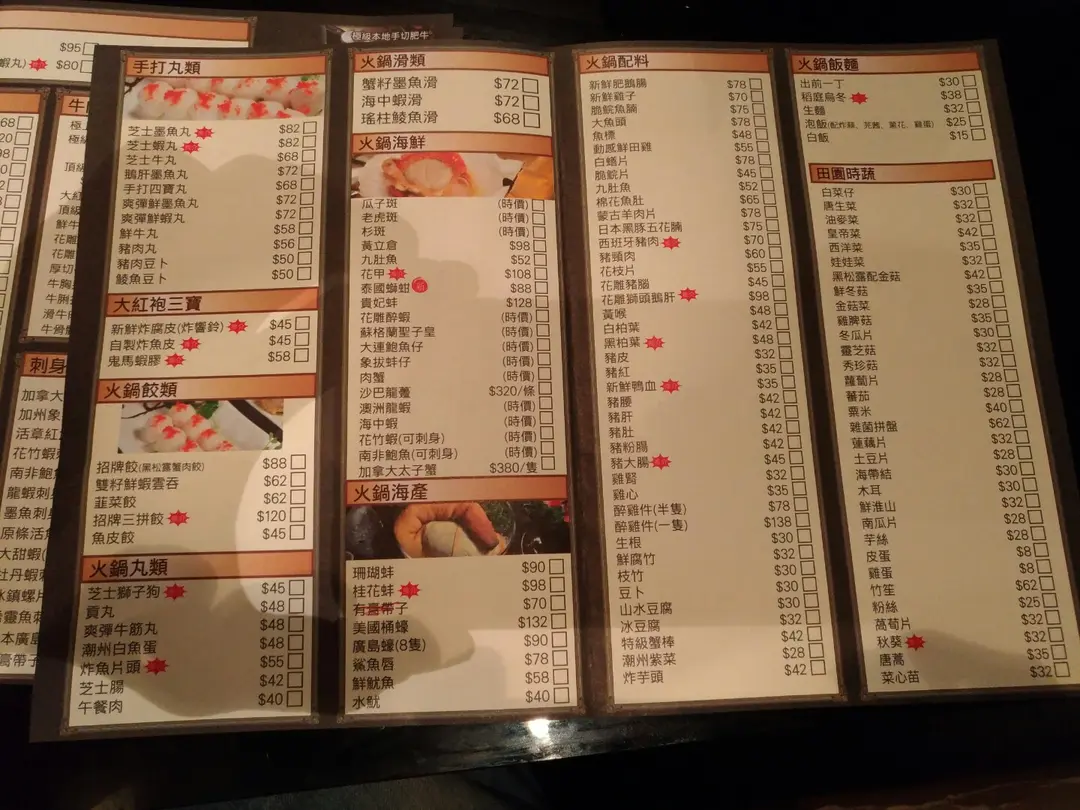 極級本地手切肥牛
$95
蝦丸) $80
手打丸類
芝士墨魚丸 $82
芝士蝦丸 $82
芝士牛丸 $68
鵝肝墨魚丸 $72
手打四寶丸 $68
爽彈鮮墨魚丸 $72
爽彈鮮蝦丸 $72
鮮牛丸 $58
豬肉丸 $56
豬肉豆卜 $50
鯪魚豆卜 $50
大紅袍三寶
新鮮炸腐皮(炸響鈴) $45
自製炸魚皮 $45
鬼馬蝦膠 $58
火鍋餃類
招牌餃(黑松露蟹肉餃) $88
雙籽鮮蝦雲吞 $62
韮菜餃 $62
招牌三拼餃 $120
魚皮餃 $45
火鍋丸類
芝士獅子狗 $45
貢丸 $48
爽彈牛筋丸 $48
潮州白魚蛋 $48
炸魚片頭 $55
芝士腸 $42
午餐肉 $40
火鍋滑類
蟹籽墨魚滑 $72
海中蝦滑 $72
瑤柱鯪魚滑 $68
火鍋海鮮
瓜子斑 (時價)
老虎斑 (時價)
杉斑 (時價)
黃立倉 $98
九肚魚 $52
花甲 $108
泰國螄蚶 $88
貴妃蚌 $128
花雕醉蝦 (時價)
蘇格蘭聖子皇 (時價)
大連鮑魚仔 (時價)
象拔蚌仔 (時價)
肉蟹 (時價)
沙巴龍躉 $320/條
澳洲龍蝦 (時價)
海中蝦 (時價)
花竹蝦(可刺身) (時價)
南非鮑魚(可刺身) (時價)
加拿大太子蟹 $380/隻
火鍋海產
珊瑚蚌 $90
桂花蚌 $98
有膏帶子 $70
美國桶蠔 $132
廣島蠔(8隻) $90
鯊魚唇 $78
鮮魷魚 $58
水魷 $40
火鍋配料
新鮮肥鵝腸 $78
新鮮雞子 $70
脆鯇魚腩 $75
大魚頭 $78
魚標 $48
動感鮮田雞 $55
白鱔片 $78
脆鯇片 $45
九肚魚 $52
棉花魚肚 $65
蒙古羊肉片 $78
日本黑豚五花腩 $75
西班牙豬肉 $70
豬頸肉 $60
花枝片 $55
花雕豬腦 $45
花雕獅頭鵝肝 $98
黃喉 $48
白柏葉 $42
黑柏葉 $48
豬皮 $32
豬紅 $35
新鮮鴨血 $35
豬腰 $42
豬肝 $42
豬肚 $42
豬粉腸 $42
豬大腸 $45
雞腎 $32
雞心 $35
醉雞件(半隻) $78
醉雞件(一隻) $138
生根 $30
鮮腐竹 $32
枝竹 $30
豆卜 $30
山水豆腐 $32
冰豆腐 $32
特級蟹棒 $42
潮州紫菜 $28
炸芋頭 $42
火鍋飯麵
出前一丁 $30
稻庭烏冬 $38
生麵 $32
泡飯(配炸蒜、芫茜、蔥花、雞蛋) $25
白飯 $15
田園時蔬
白菜仔 $30
唐生菜 $32
油麥菜 $32
皇帝菜 $42
西洋菜 $35
娃娃菜 $32
黑松露配金菇 $42
鮮冬菇 $35
金菇菜 $28
雞脾菇 $35
冬瓜片 $30
靈芝菇 $32
秀珍菇 $32
蘿蔔片 $28
蕃茄 $28
粟米 $40
雜菌拼盤 $62
蓮藕片 $32
土豆片 $28
海帶結 $30
木耳 $30
鮮淮山 $32
南瓜片 $28
芋絲 $28
皮蛋 $8
雞蛋 $8
竹笙 $62
粉絲 $25
萵荀片 $32
秋葵 $32
唐蒿 $35
菜心苗 $32
刺身
加拿大
加州象
活章紅
花竹蝦
南非鮑
龍蝦刺
墨魚刺
原條活
大甜蝦
牡丹蝦
冰鎮螺片
本廣島
膏帶子